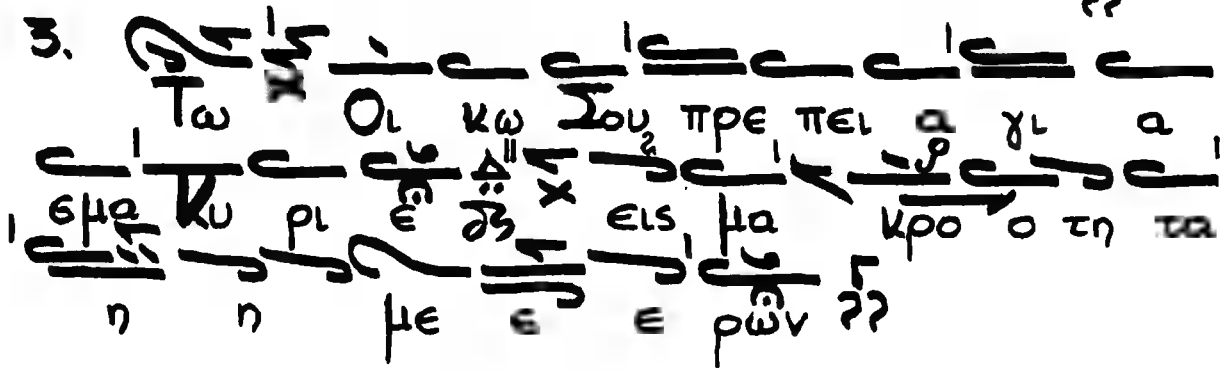 3.
Τω Οι κω Σου πρε πει α γι α
εμα Κυ ρι ε εις μα κρο ο τη τα
η η με ε ε ρων